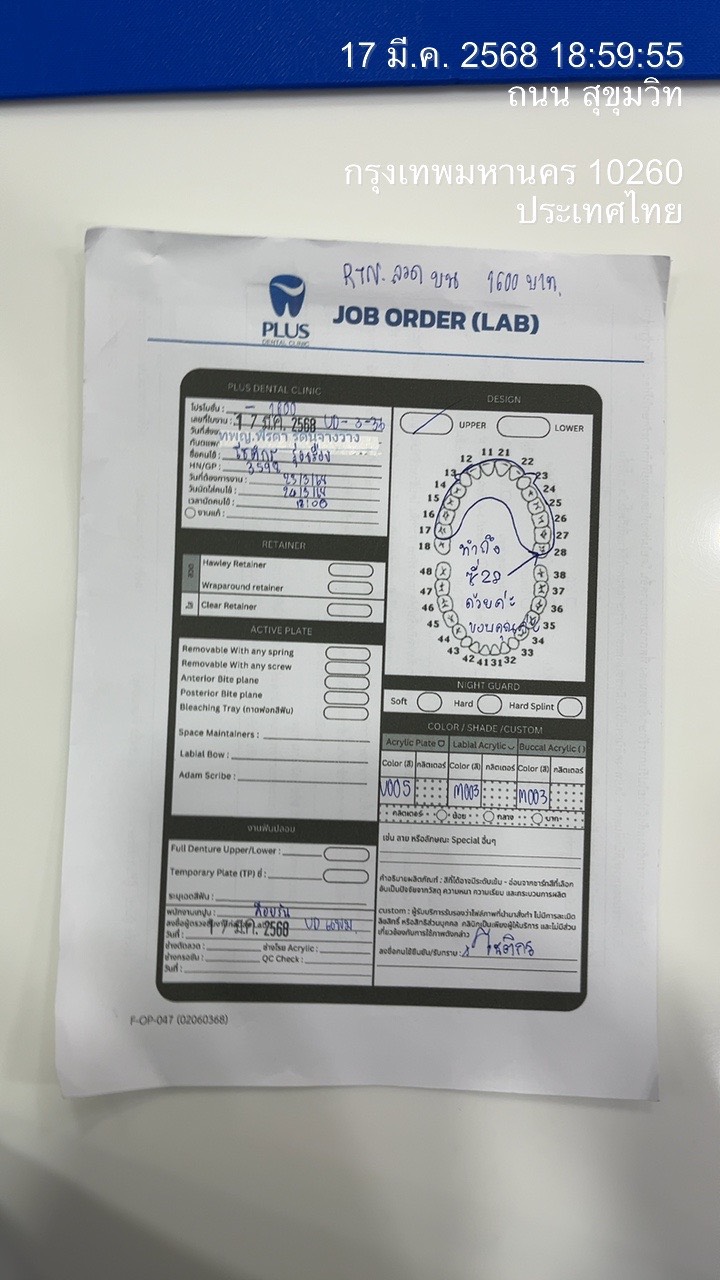 17 มี.ค. 2568 18:59:55
ถนน สุขุมวิท
กรุงเทพมหานคร 10260
ประเทศไทย
RTN. ลวด บน 1600 บาท.
PLUS
DENTAL CLINIC
JOB ORDER (LAB)
PLUS DENTAL CLINIC
โปรโมชั่น : - 1600
เลขที่ใบงาน :
17 มี.ค. 2568 UD-3-36
ชื่อคนไข้ :
HN/GP : 3598
วันที่ต้องการงาน : 23/3/68
วันนัดใส่คนไข้ : 24/3/68
เวลานัดคนไข้ : 12:00
งานแก้ :
RETAINER
Hawley Retainer
Wraparound retainer
Clear Retainer
ACTIVE PLATE
Removable With any spring
Removable With any screw
Anterior Bite plane
Posterior Bite plane
Bleaching Tray (ถาดฟอกสีฟัน)
Space Maintainers :
Labial Bow :
Adam Scribe :
งานฟันปลอม
Full Denture Upper/Lower :
Temporary Plate (TP) ซี่ :
ระบุเฉดสีฟัน :
พนักงานเทปูน :
17 มี.ค. 2568
วันที่ :
ช่างดัดลวด : ช่างโรย Acrylic :
ช่างกรอขัด : QC Check :
วันที่ :
DESIGN
UPPER LOWER
11 21
12 22
13 23
14 24
15 25
16 26
17 27
18 28
48 38
47 37
46 36
45 35
44 34
43 33
42 41 31 32
ทำถึง
ซี่ 28
ด้วยค่ะ
ขอบคุณค่ะ
NIGHT GUARD
Soft Hard Hard Splint
COLOR / SHADE /CUSTOM
Acrylic Plate Labial Acrylic Buccal Acrylic ()
Color (สี) กลิตเตอร์ Color (สี) กลิตเตอร์ Color (สี) กลิตเตอร์
V005 M003 M003
กลิตเตอร์ น้อย กลาง มาก
เช่น ลาย หรือลักษณะ Special อื่นๆ
คำอธิบายผลิตภัณฑ์ : สีที่ได้อาจมีระดับเข้ม - อ่อนจากชาร์ทสีที่เลือก
อันเป็นปัจจัยจากวัสดุ ความหนา ความเรียบ และกระบวนการผลิต
custom : ผู้รับบริการรับรองว่าไฟล์ภาพที่นำมาสั่งทำ ไม่มีการละเมิด
ลิขสิทธิ์ หรือสิทธิส่วนบุคคล คลินิกเป็นเพียงผู้ให้บริการ และไม่มีส่วน
เกี่ยวข้องกับการใช้ภาพดังกล่าว
ลงชื่อคนไข้ยืนยัน/รับทราบ : โชติกร
F-OP-047 (02060368)